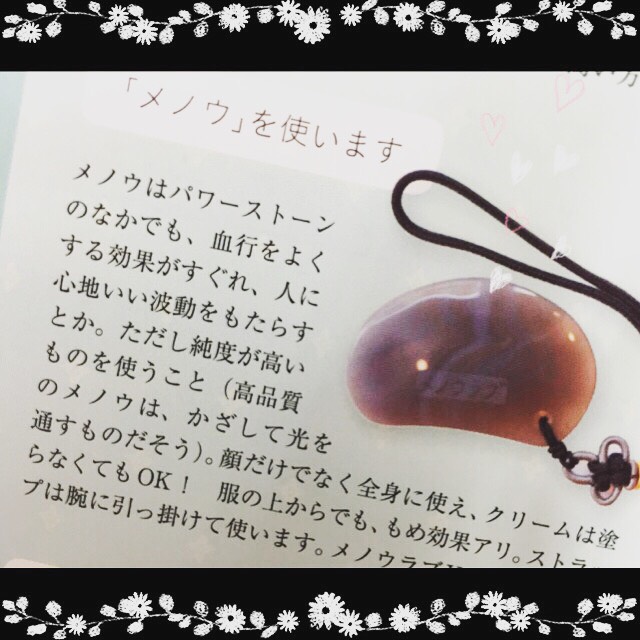 「メノウ」を使います
メノウはパワーストーン
のなかでも、血行をよく
する効果がすぐれ、人に
心地いい波動をもたらす
とか。ただし純度が高い
ものを使うこと（高品質
のメノウは、かざして光を
通すものだそう）。顔だけでなく全身に使え、クリームは塗
らなくてもOK！　服の上からでも、もめ効果アリ。ストラ
プは腕に引っ掛けて使います。メノウラブ